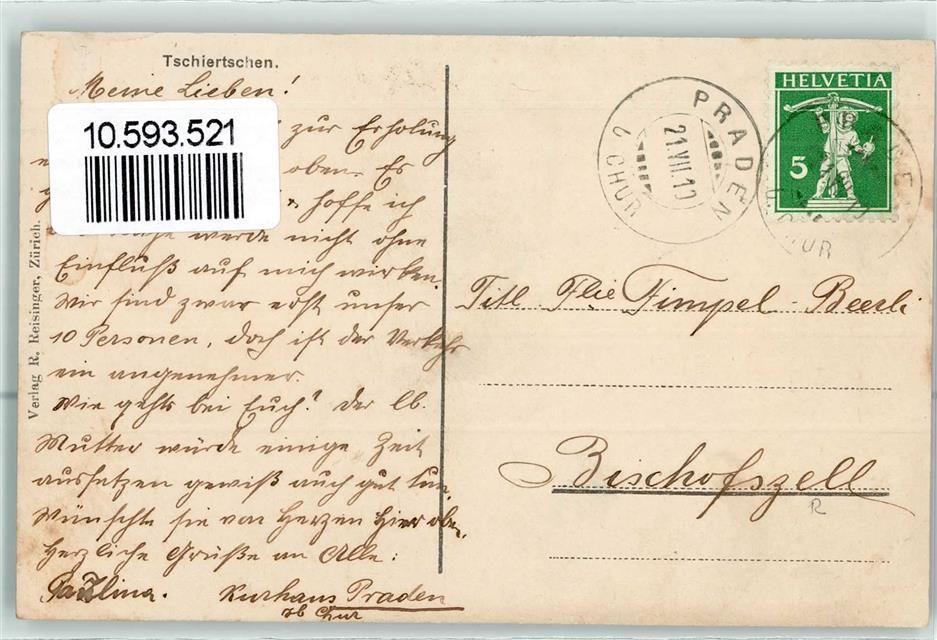 Tschiertschen.
Meine Lieben!
10.593.521
zur Erholung
oben. Es
hoffe ich
werde nicht ohne
Einfluß auf mich wirken.
Wir sind zwar erst unser
10 Personen, doch ist der Verkehr
ein angenehmer.
Wie gehts bei Euch? Der lb.
Mutter würde einige Zeit
aussetzen gewiß auch gut tun.
Wünschte sie von Herzen hier oben.
Herzliche Grüße an Alle:
Paulina. Kurhaus Praden
ob Chur
Verlag R. Reisinger, Zürich.
PRADEN
21.VII.10
(CHUR)
HELVETIA
5
Titl. Flie Fimpel-Beerli
Bischofszell
R